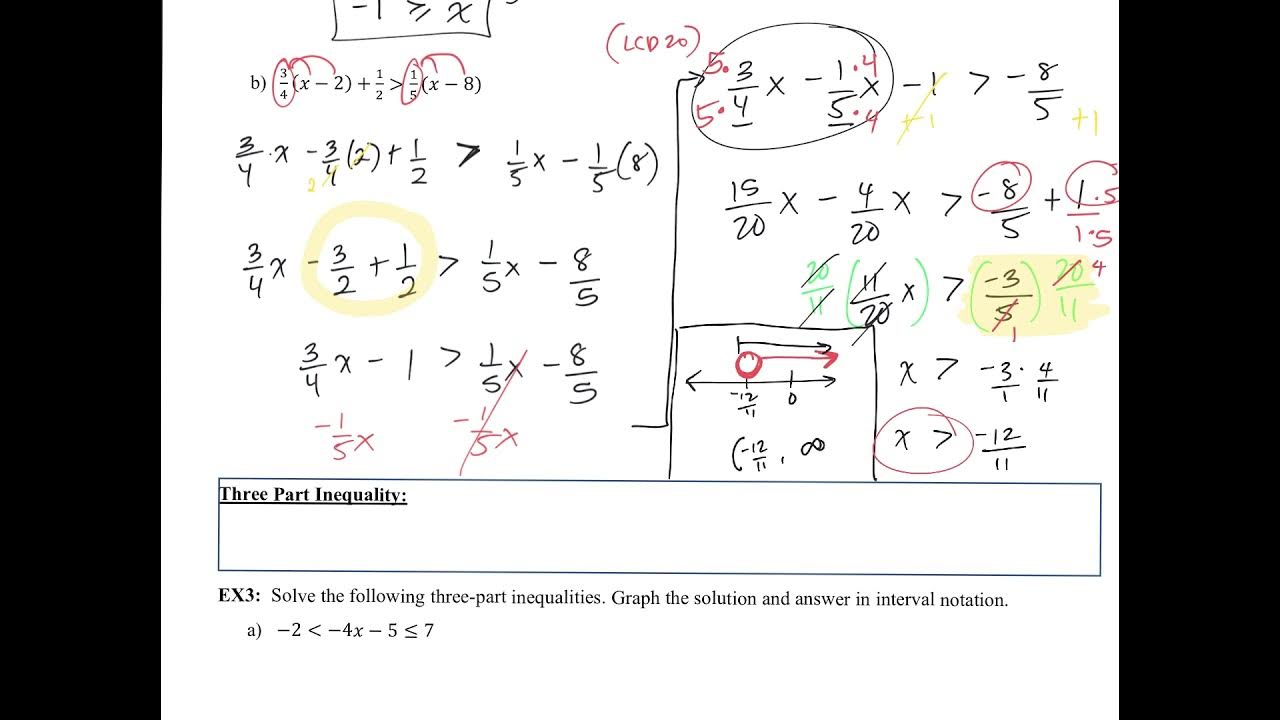 -1 ≥ x
b) 3/4(x − 2) + 1/2 > 1/5(x − 8)
3/4 · x − 3/4(2) + 1/2 > 1/5x − 1/5(8)
2
3/4x − 3/2 + 1/2 > 1/5x − 8/5
3/4x − 1 > 1/5x − 8/5
-1/5x -1/5x
(LCD 20)
5· 3/4x − 1/5x ·4 − 1 > -8/5
5· ·4 +1 +1
15/20x − 4/20x > -8/5 + 1·5/1·5
20/11 (11/20x) > (-3/5) 20/11
4
1
x > -3/1 · 4/11
x > -12/11
-12/11 0
(-12/11, ∞
Three Part Inequality:
EX3: Solve the following three-part inequalities. Graph the solution and answer in interval notation.
a) −2 < −4x − 5 ≤ 7